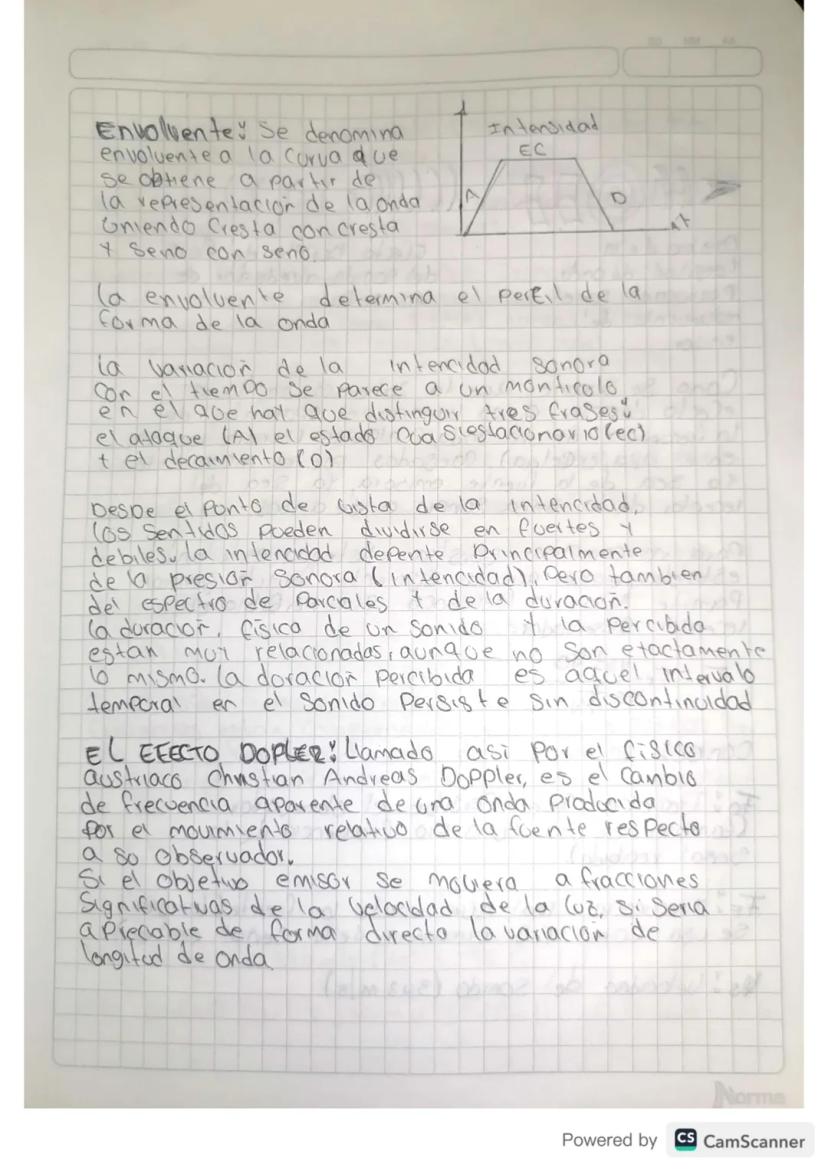 Envolvente: Se denomina
envolvente a la curva que
se obtiene a partir de
la representación de la onda
uniendo Cresta con cresta
y Seno con seno.
Intensidad
EC
A
D
t
la envolvente determina el perfil de la
forma de la onda
la variacion de la intencidad sonora
con el tiempo se parece a un monticolo
en el que hay que distinguir tres frases:
el ataque (A) el estado cuasiestacionario (ec)
y el decaimiento (D)
Desde el Punto de vista de la intencidad,
los sentidos pueden dividirse en fuertes y
debiles. la intencidad depente Principalmente
de la presion sonora (intencidad), Pero tambien
del espectro de Parciales y de la duracion.
la duracion, fisica de un sonido y la percibida
estan muy relacionadas, aunque no son etactamente
lo mismo. la doracion percibida es aquel intervalo
temporal en el sonido Persiste sin discontinuidad
EL EFECTO DOPLER: llamado asi por el fisico
austriaco Christian Andreas Doppler, es el cambio
de frecuencia aparente de una onda Producida
por el movimiento relativo de la fuente respecto
a so observador.
Si el objetivo emisor se moviera a fracciones
significativas de la velocidad de la luz, si seria
apreciable de forma directo la variacion de
longitud de onda
Norma
Powered by CS CamScanner